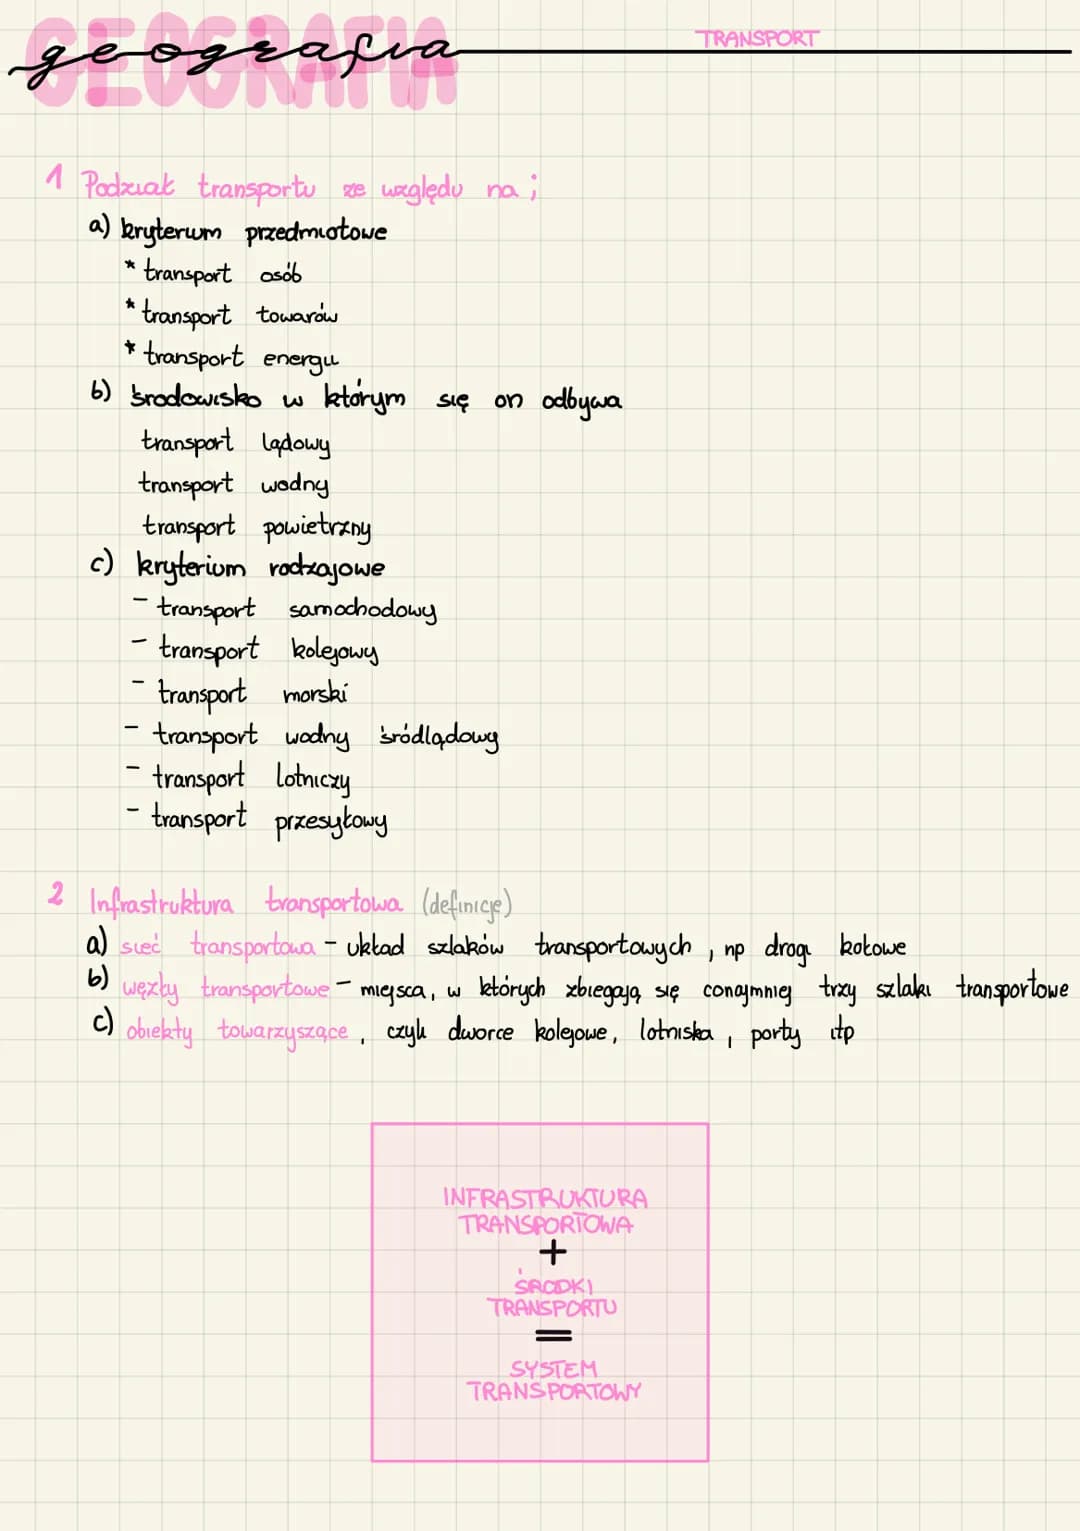 GEOGRAFIA
geografia
TRANSPORT
1 Podział transportu ze względu na ;
a) kryterium przedmiotowe
* transport osób
* transport towarów
* transport energii
b) środowisko w którym się on odbywa
transport lądowy
transport wodny
transport powietrzny
c) kryterium rodzajowe
- transport samochodowy
- transport kolejowy
- transport morski
- transport wodny śródlądowy
- transport lotniczy
- transport przesyłowy
2 Infrastruktura transportowa (definicje)
a) sieć transportowa - układ szlaków transportowych, np drogi kołowe
b) węzły transportowe - miejsca, w których zbiegają się conajmniej trzy szlaki transportowe
c) obiekty towarzyszące, czyli dworce kolejowe, lotniska, porty itp
INFRASTRUKTURA
TRANSPORTOWA
+
ŚRODKI
TRANSPORTU
=
SYSTEM
TRANSPORTOWY